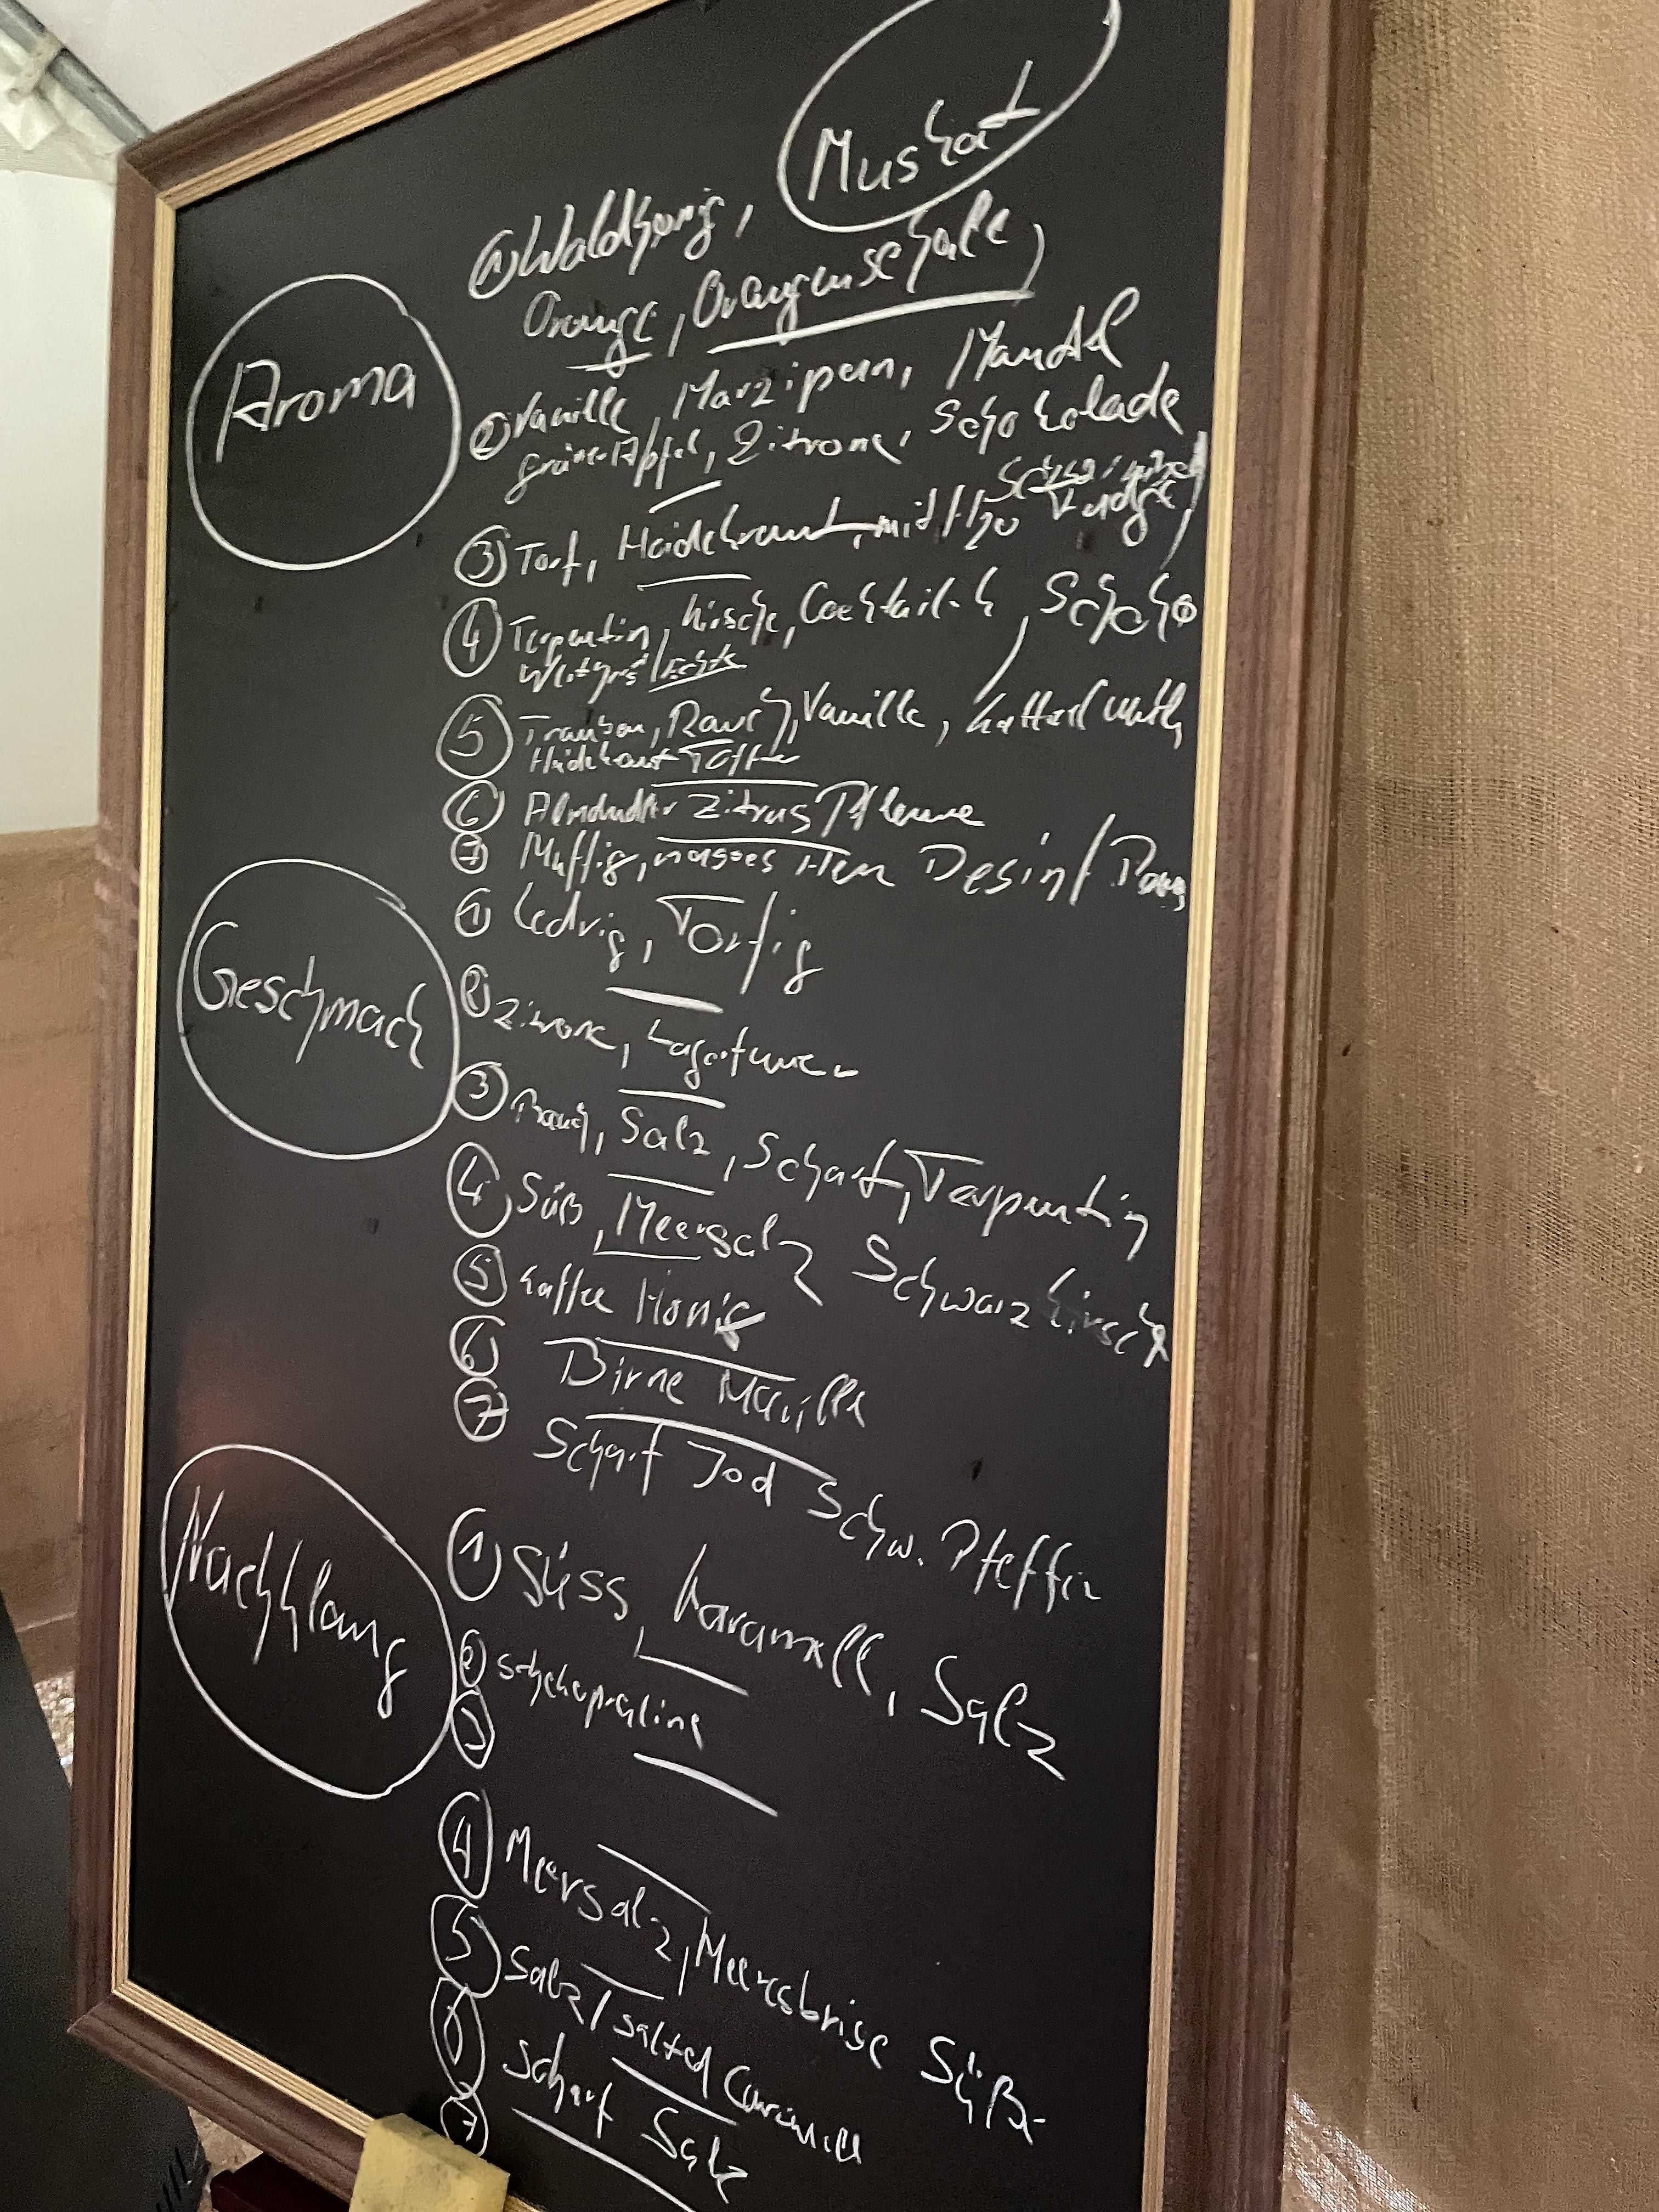 Muskat
① Waldhonig,
Orange, Orangenschale,
Aroma
② Vanille, Marzipan, Mandel
grüner Apfel, Zitrone, Schokolade
③ Torf, Heidekraut, mit H20
④ Terpentin, Kirsche, Cocktail-K, Schoko
⑤ Trauben, Rauch, Vanille,
Heidekraut Toffee
⑥ Almdudler Zitrus Pflaume
⑦ Muffig, nasses Heu Desinf
Geschmack
① Ledrig, Torfig
② Zitrone,
③ Rauch, Salz, Scharf, Terpentin
④ Süß, Meersalz Schwarzkirsche
⑤ Kaffee Honig
⑥ Birne Marille
⑦ Scharf Jod Schw. Pfeffer
Nachklang
① Süss, Karamell, Salz
② Schokopraline
③
④ Meersalz, Meeresbrise Süß
⑤ Salz / salted Caramell
⑥ Scharf Salz
⑦